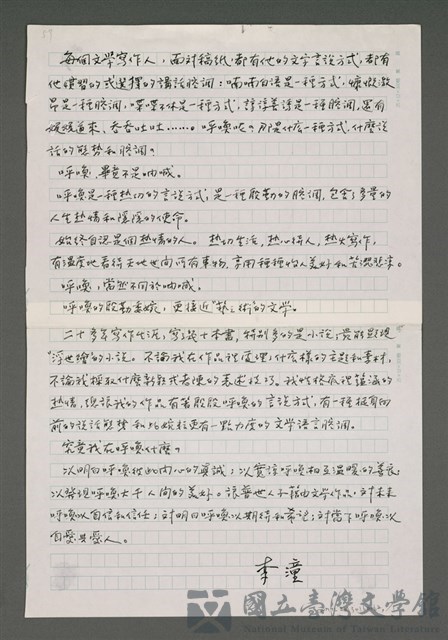 每個文學寫作人，面對稿紙都有他的文字言說方式，都有
他慣習的或選擇的講話腔調：喃喃自語是一種方式，慷慨激
昂是一種腔調，喋喋不休是一種方式，諄諄善誘是一種腔調，還有
娓娓道來、吞吞吐吐……。呼喚呢？那是什麼一種方式，什麼說
話的態勢和腔調？
呼喚，畢竟不是吶喊。
呼喚是一種熱切的言說方式，是一種殷勤的腔調，包含了多量的
人生熱情和隱隱的使命。
始終自認是個熱情的人。熱切生活，熱心待人，熱火寫作，
有溫度地看待天地世間所有事物，享用種種的人美好和苦澀悲辛。
呼喚，當然不同於吶喊。
呼喚的殷勤柔婉，更接近藝術的文學。
二十多年寫作生涯，寫了數十本書，特別多的是小說，
浮世繪的小說。不論我在作品裡處理什麼樣的主題和素材，
不論我採取什麼新款或老陳的表述技巧。我性格底裡滿滿的
熱情，總讓我的作品有著殷殷呼喚的言說方式，有一種挺身向
前的說話態勢和比婉拒更有一點力度的文學語言腔調。
究竟我在呼喚什麼？
以明白呼喚彼此內心的真誠；以寬諒呼喚相互溫暖的善良；
以發現呼喚大千人間的美好。讓舊世人子藉由文學作品，對未來
呼喚以自信和信任；對明日呼喚以期待和希望；對當下呼喚以
自愛與愛人。
李潼
國立臺灣文學館
National Museum of Taiwan Literature